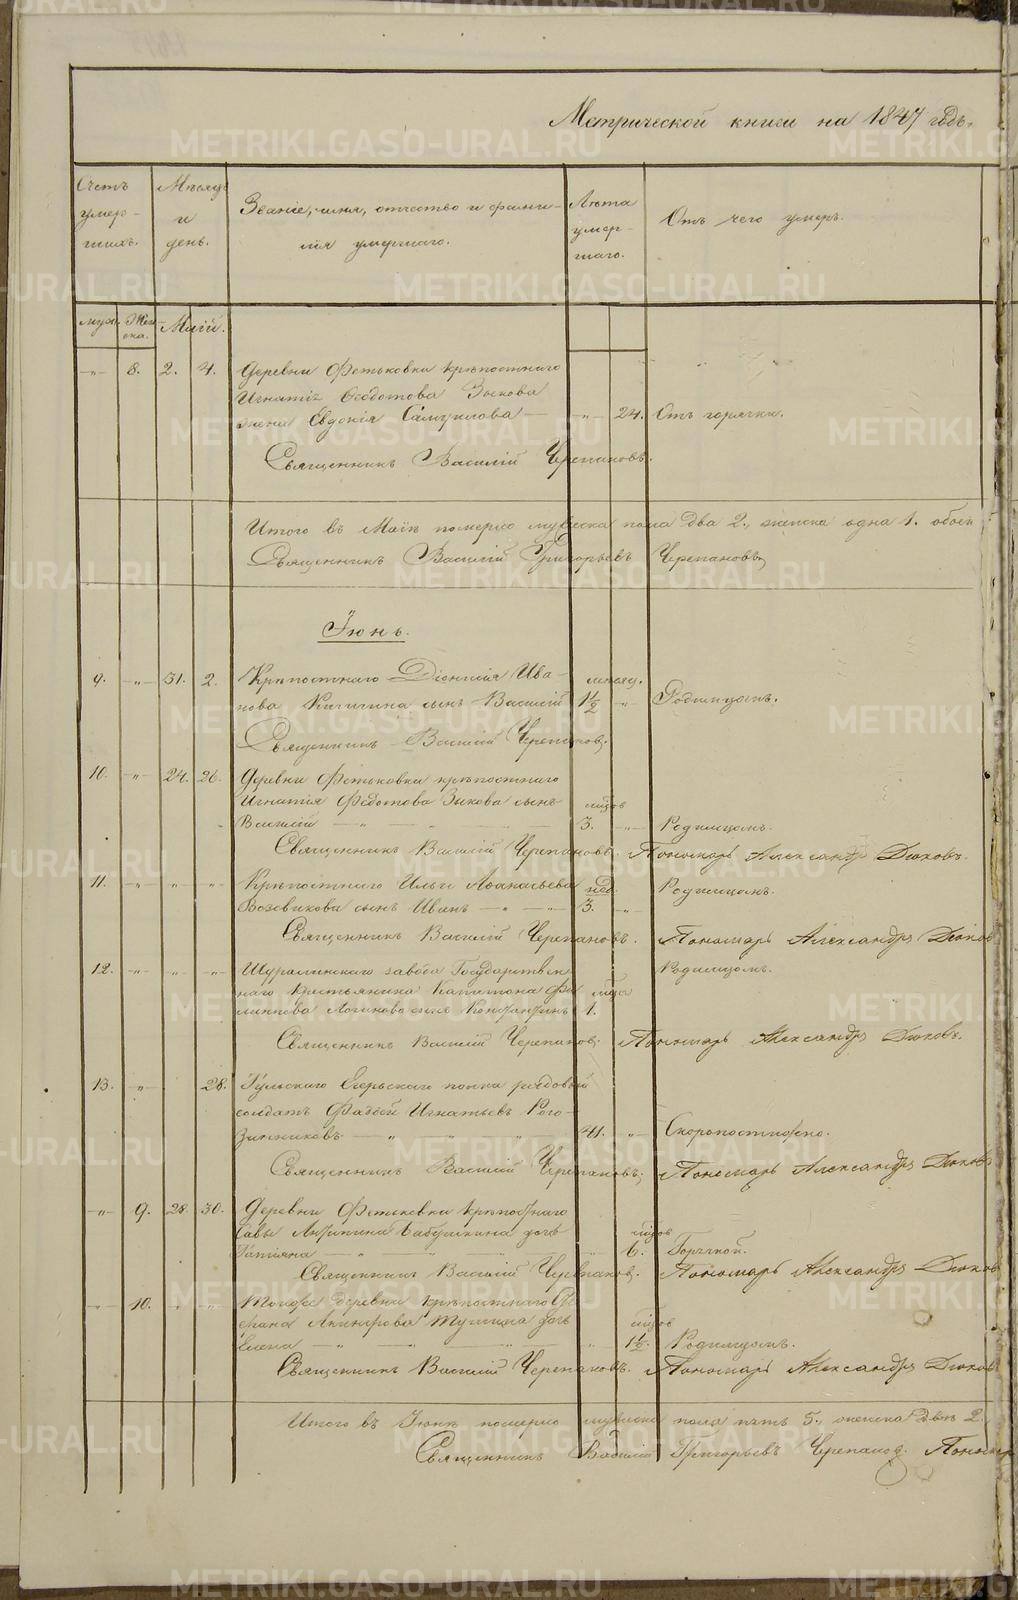 Метрической книги на 1847 годъ.
Счетъ умер-шихъ.
Мѣсяцъ и день.
Званіе, имя, отчество и фами-
лія умершаго.
Лѣта умер-шаго.
Отъ чего умеръ.
муж. Жен-ска. Маій.
-„- 8. 2. 4. Деревни Фетьковки крѣпостнаго
Игнатія Ѳеодотова Зыкова
жена Евдокія Самуилова — -„- 24. Отъ горячки.
Священникъ Василій Черепановъ.
Итого въ Маіѣ померло мужеска пола два 2., женска одна 1. обоег
Священникъ Василій Григорьевъ Черепановъ
Іюнь.
9. -„- 31. 2. Крѣпостнаго Діонисія Ива- мѣсяц.
нова Кичигина сынъ Василій 1½ -„- Родимцомъ.
Священникъ Василій Черепановъ.
10. -„- 24. 26. Деревни Фетьковки крѣпостнаго
Игнатія Федотова Зыкова сынъ мѣсцов
Василій — „ 3. -„- Родимцомъ.
Священникъ Василій Черепановъ. Пономарь Александръ Дюковъ.
11. -„- -„- -„- Крѣпостнаго Ильи Аѳанасьева нед. Родимцомъ.
Возовикова сынъ Иванъ — „ — „ 3. -„-
Священникъ Василій Черепановъ. Пономарь Александръ Дюков
12. -„- -„- -„- Шуралинскаго завода Государствен- Родимцомъ.
наго крестьянина Капитона Фи мѣсц
липпова Логинова сынъ Константинъ 1.
Священникъ Василій Черепановъ. Пономарь Александръ Дюковъ.
13. -„- 28. Тульскаго Егерьскаго полка рядовый
солдатъ Фадѣй Игнатьевъ Рого-
зинниковъ — „ 41. -„- Скоропостижно.
Священникъ Василій Черепановъ; Пономарь Александръ Дюков
-„- 9. 28. 30. Деревни Фетьковки крѣпостнаго
Савы Бабушкина дочь мѣсцов
Татіяна — „ 6. Горячкой.
Священникъ Василій Черепановъ. Пономарь Александръ Дюков
- 10. „ „ Тойже деревни крѣпостнаго Сте
фана дочь мѣсцов
Елена — „ 1½. Родимцомъ.
Священникъ Василій Черепановъ. Пономарь Александръ Дюков
Итого въ Іюнѣ померло мужеска пола пять 5., женска двѣ 2.
Священникъ Василій Григорьевъ Черепанов. Пономар
METRIKI.GASO-URAL.RU